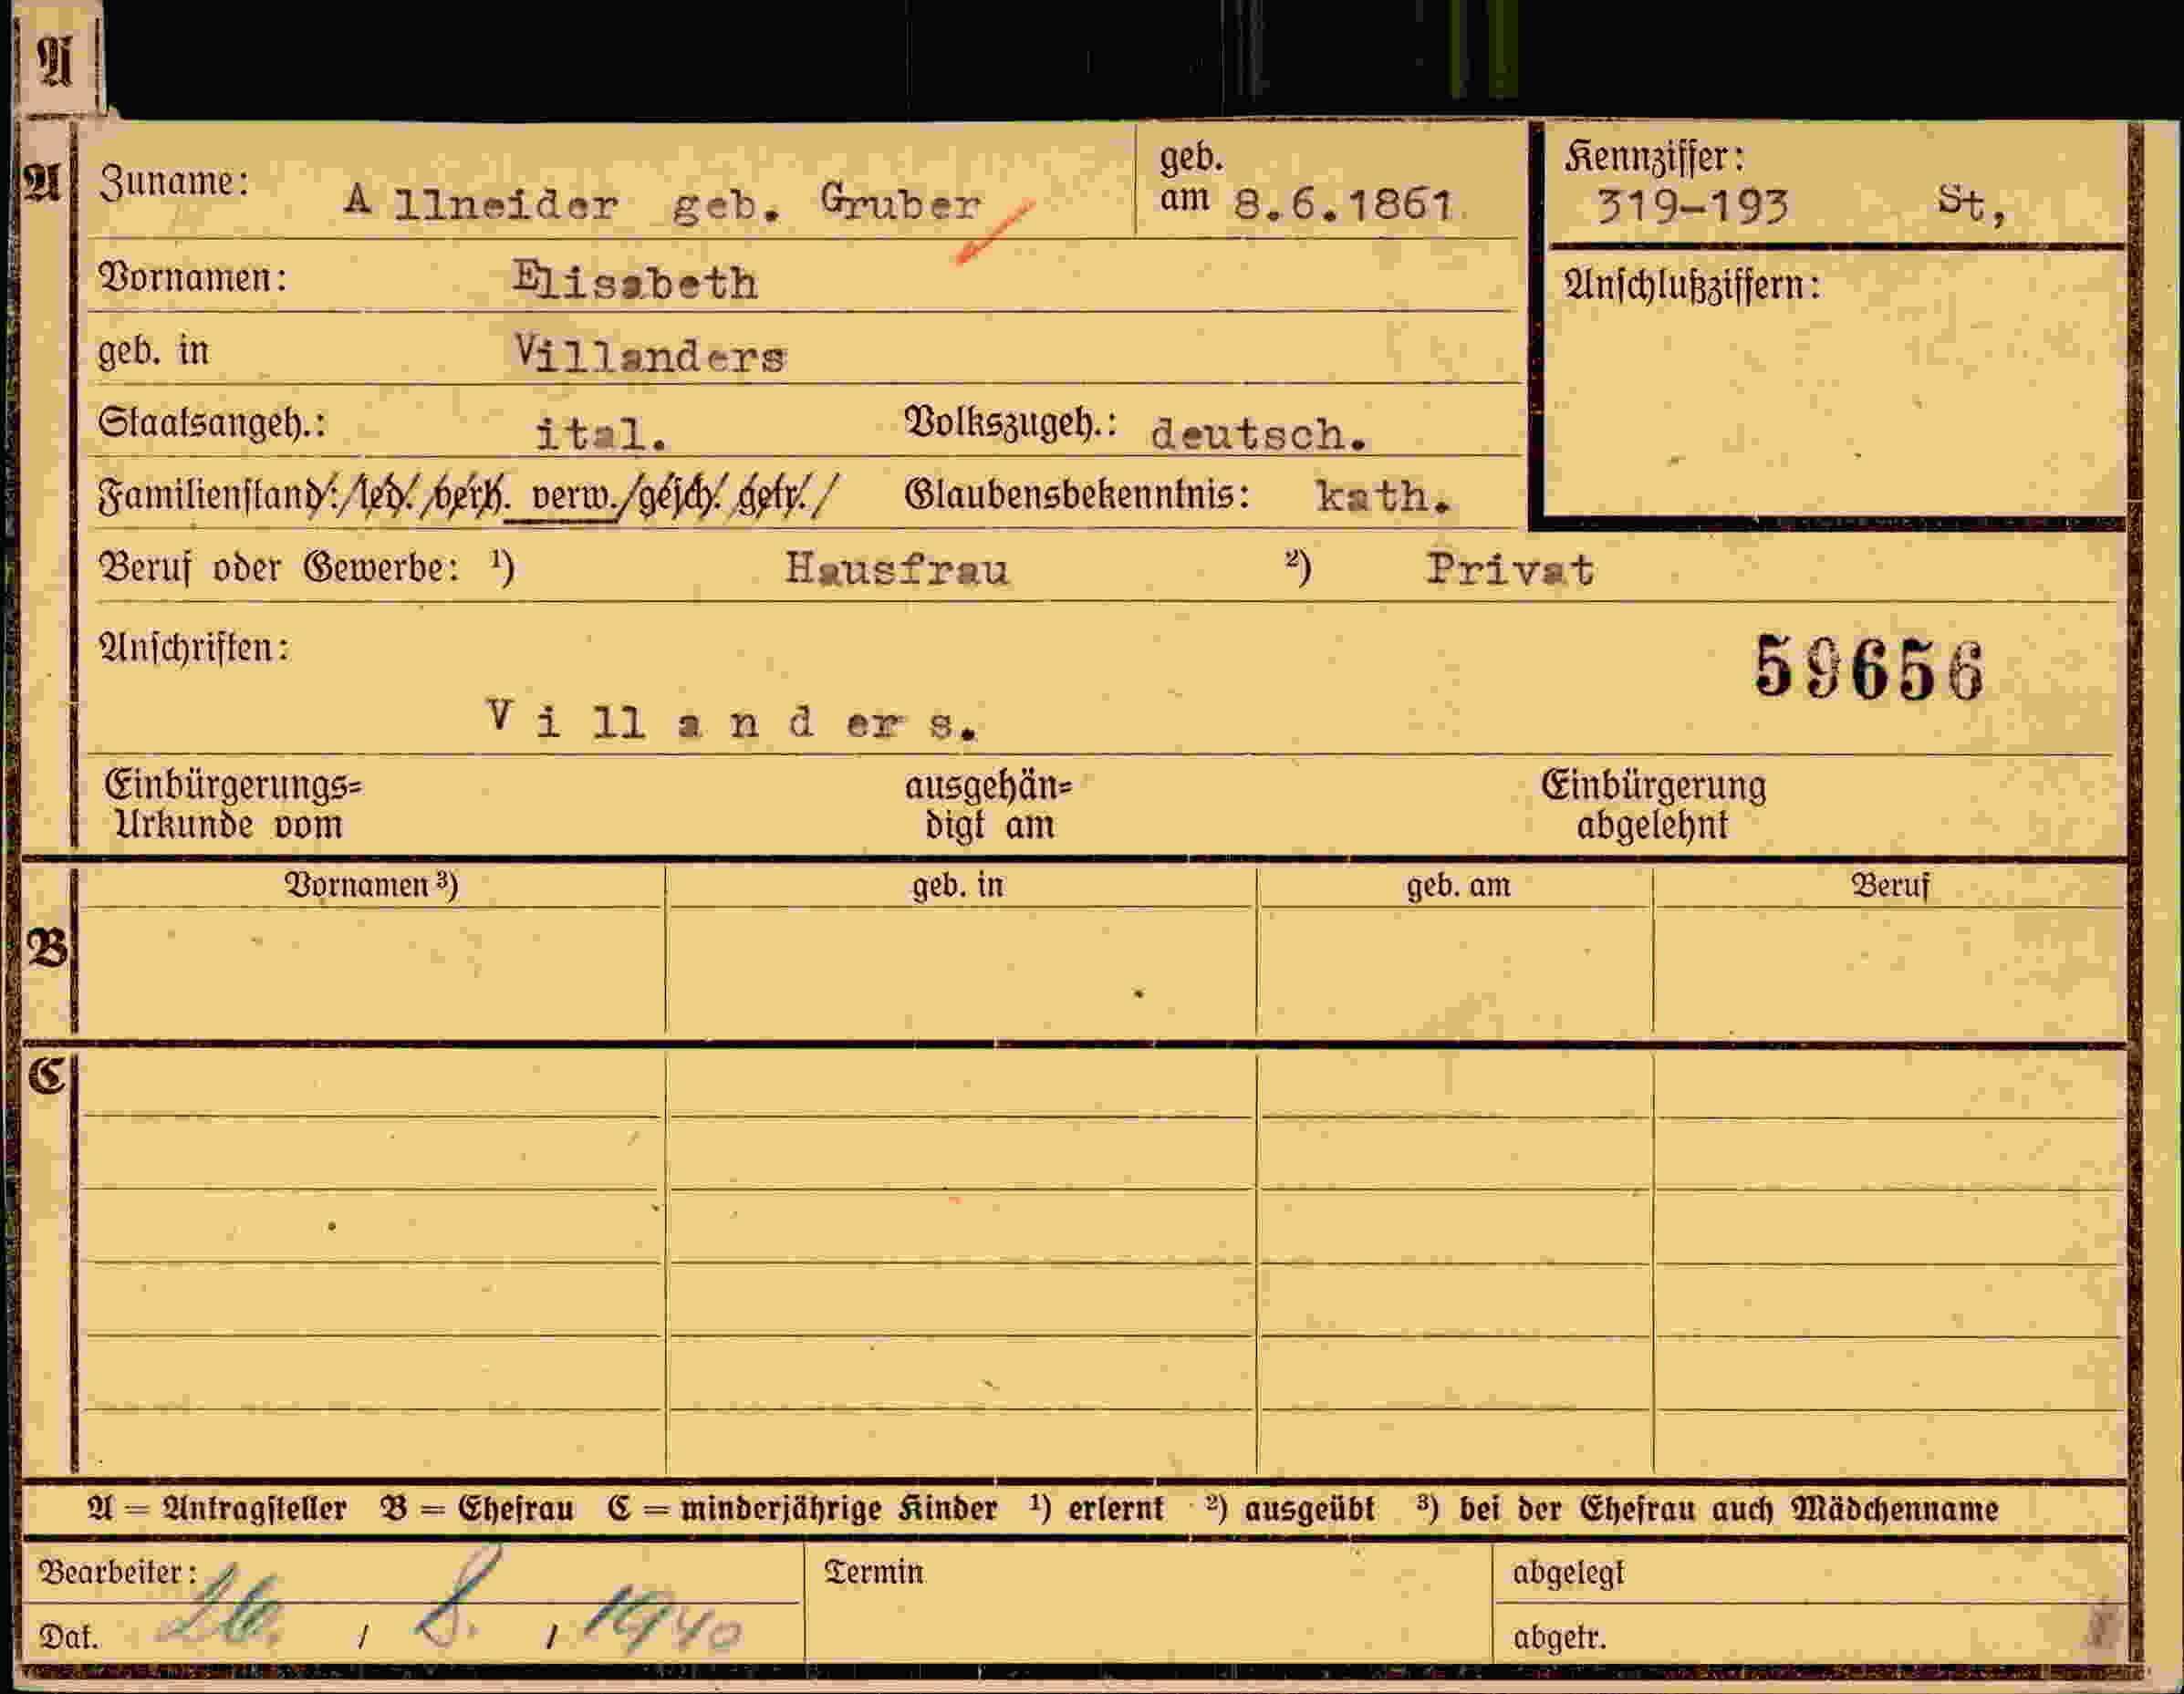 A
A Zuname: A llneider geb. Gruber geb. am 8.6.1861
Kennziffer: 319-193 St,
Vornamen: Elisabeth
Anschlußziffern:
geb. in Villanders
Staatsangeh.: ital. Volkszugeh.: deutsch.
Familienstand: led. verh. verw. gesch. getr. Glaubensbekenntnis: kath.
Beruf oder Gewerbe: ¹) Hausfrau ²) Privat
Anschriften:
59656
V i ll a n d er s.
Einbürgerungs= ausgehän= Einbürgerung
Urkunde vom digt am abgelehnt
Vornamen ³) geb. in geb. am Beruf
B
C
A = Antragsteller B = Ehefrau C = minderjährige Kinder ¹) erlernt ²) ausgeübt ³) bei der Ehefrau auch Mädchenname
Bearbeiter: Termin abgelegt
Dat. 26. / 8. / 1940 abgetr.